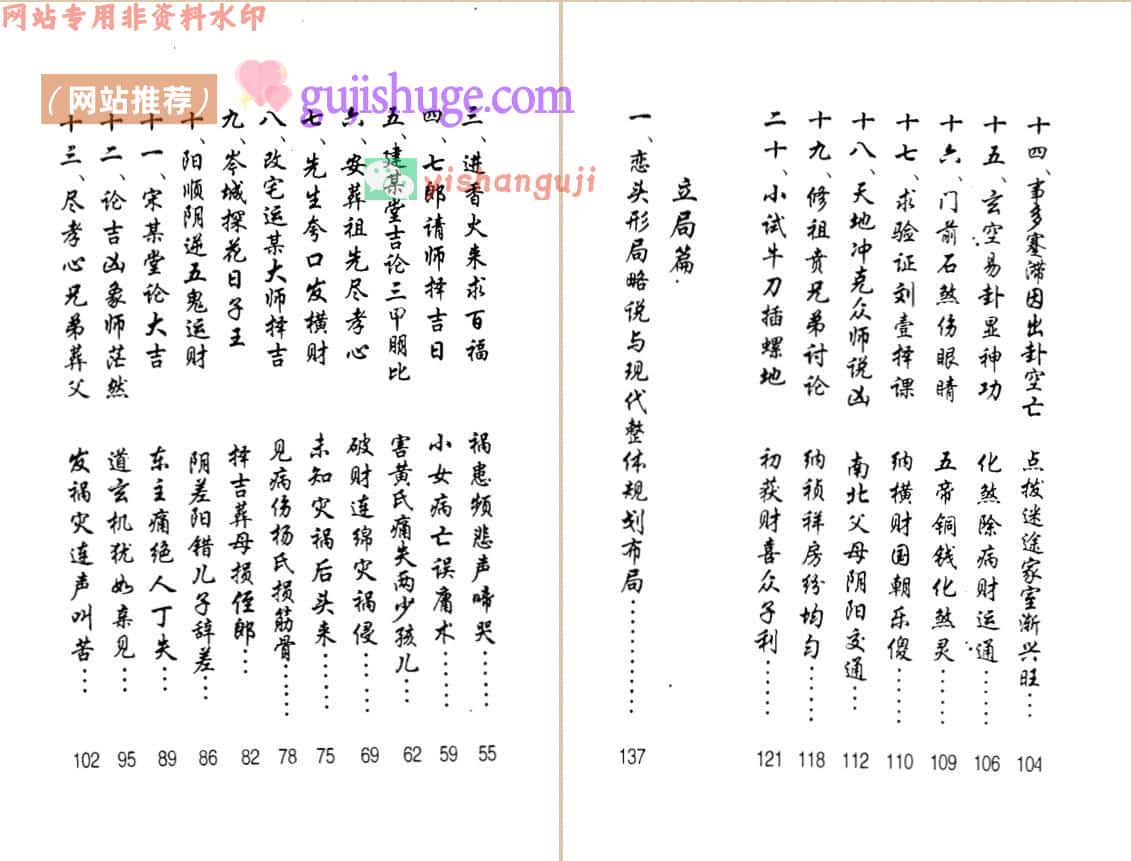 网站专用非资料水印
（网站推荐）
gujishuge.com
yishanguji
三、进香火来求百福 祸患频悲声啼哭…… 55
四、七郎请师择吉日 小女病亡误庸术… 59
五、建某堂吉论三甲朋比 害黄氏痛失两少孩儿… 62
六、安葬祖先尽孝心 破财连绵灾祸侵…… 69
七、先生夸口发横财 未知灾祸后头来…… 75
八、改宅运某大师择吉 见病伤杨氏损筋骨…… 78
九、岑城探花日子王 择吉葬母损侄郎… 82
十、阳顺阴逆五鬼运财 阴差阳错儿子辞差… 86
十一、宋某堂论大吉 东主痛绝人丁失… 89
十二、论吉凶象师茫然 道玄机犹如亲见… 95
十三、尽孝心兄弟葬父 发祸灾连声叫苦… 102
十四、事多蹇滞因出卦空亡 点拨迷途家室渐兴旺… 104
十五、玄空易卦显神功 化煞除病财运通…… 106
十六、门前石煞伤眼睛 五帝铜钱化煞灵…… 109
十七、求验证刘壹择课 纳横财国朝乐傻…… 110
十八、天地冲克众师说凶 南北父母阴阳交通… 112
十九、修祖贲兄弟讨论 纳祯祥房纷均匀…… 118
二十、小试牛刀插螺地 初获财喜众子利…… 121
立局篇
一、恋头形局略说与现代整体规划布局………… 137